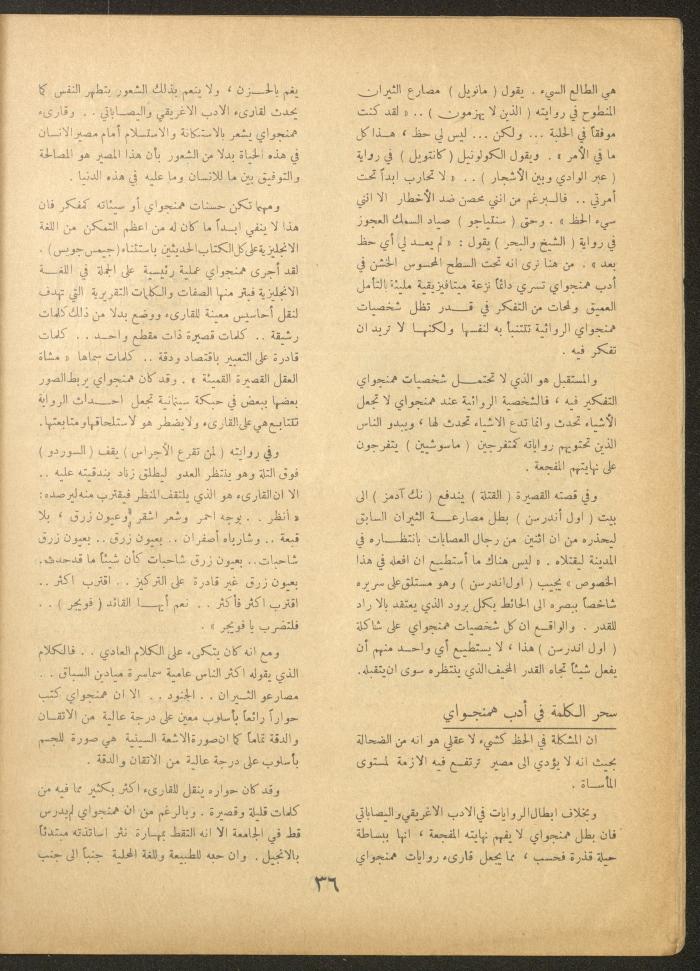 هي الطالع السيء . يقول ( مانويل ) مصارع الثيران
المنطوح في روايته ( الذين لا يهزمون ) .. « لقد كنت
موفقاً في الحلبة ... ولكن ... ليس لي حظ ، هذا كل
ما في الأمر » . ويقول الكولونيل ( كانتويل ) في رواية
( عبر الوادي وبين الأشجار ) .. « لا تحارب ابداً تحت
أمرتي .. فالبرغم من انني محصن ضد الأخطار الا انني
سيء الحظ » . وحتى ( سنتياجو ) صياد السمك العجوز
في رواية ( الشيخ والبحر ) يقول : « لم يعد لي أي حظ
بعد » . من هنا نرى انه تحت السطح المحسوس الخشن في
أدب همنجواي تسري دائماً نزعة ميتافيزيقية مليئة بالتأمل
العميق ولمحات من التفكر في قدر تظل شخصيات
همنجواي الروائية تتنبأ به لنفسها ولكنها لا تريد ان
تفكر فيه .
والمستقبل هو الذي لا تحتمل شخصيات همنجواي
التفكير فيه ، فالشخصية الروائية عند همنجواي لا تجعل
الأشياء تحدث وانما تدع الاشياء تحدث لها ، ويبدو الناس
الذين تحتويهم رواياته كمتفرجين ( ماسوشيين ) يتفرجون
على نهايتهم المفجعة .
وفي قصته القصيرة ( القتلة ) يندفع ( نك آدمز ) الى
بيت ( اول أندرسن ) بطل مصارعة الثيران السابق
ليحذره من ان اثنين من رجال العصابات بانتظاره في
المدينة ليقتلاه . « ليس هناك ما أستطيع ان افعله في هذا
الخصوص » يجيب ( اول اندرسن ) وهو مستلق على سريره
شاخصاً ببصره الى الحائط بكل برود الذي يعتقد بالا راد
للقدر . والواقع ان كل شخصيات همنجواي على شاكلة
( اول اندرسن ) هذا ، لا يستطيع أي واحد منهم أن
يفعل شيئاً تجاه القدر المخيف الذي ينتظره سوى ان يتقبله.
سحر الكلمة في أدب همنجواي
ان المشكلة في الحظ كشيء لا عقلي هو انه من الضحالة
بحيث انه لا يؤدي الى مصير ترتفع فيه الازمة لمستوى
المأساة .
وبخلاف ابطال الروايات في الادب الاغريقي واليصاباتي
فان بطل همنجواي لا يفهم نهايته المفجعة ، انها ببساطة
حيلة قذرة فحسب ، مما يجعل قارىء روايات همنجواي
يغم بالحزن ، ولا ينعم بذلك الشعور بتطهر النفس كما
يحدث لقارىء الادب الاغريقي واليصاباتي .. وقارىء
همنجواي يشعر بالاستكانة والاستسلام أمام مصير الانسان
في هذه الحياة بدلا من الشعور بأن هذا المصير هو المصالحة
والتوفيق بين ما للانسان وما عليه في هذه الدنيا .
ومهما تكن حسنات همنجواي أو سيئاته كمفكر فان
هذا لا ينفي ابداً ما كان له من اعظم التمكن من اللغة
الانجليزية على كل الكتاب الحديثين باستثناء ( جيمس جويس ) .
لقد أجرى همنجواي عملية رئيسية على الجملة في اللغة
الانجليزية فبتر منها الصفات والكلمات التقريرية التي تهدف
لنقل أحاسيس معينة للقارىء ووضع بدلا من ذلك كلمات
رشيقة .. كلمات قصيرة ذات مقطع واحد .. كلمات
قادرة على التعبير باقتصاد ودقة .. كلمات سماها « مشاة
العقل القصيرة القميئة » . وقد كان همنجواي يربط الصور
بعضها ببعض في حبكة سينمائية تجعل احداث الرواية
تتتابع هي على القارىء ولا يضطر هو لاستلحاقها ومتابعتها.
وفي روايته ( لمن تقرع الأجراس ) يقف ( السوردو )
فوق التلة وهو ينتظر العدو ليطلق زناد بندقيته عليه ..
الا ان القارىء هو الذي يلتقف المنظر فيقترب منه ليرصده :
« أنظر .. بوجه احمر وشعر اشقر وعيون زرق ، بلا
قبعة .. وشارباه أصفران .. بعيون زرق .. بعيون زرق
شاحبات .. بعيون زرق شاحبات كأن شيئاً ما قد حدث.
بعيون زرق غير قادرة على التركيز .. اقترب اكثر ..
اقترب اكثر فأكثر .. نعم أيها القائد ( فويجر ) ..
فلتضرب يا فويجر » .
ومع انه كان يتكىء على الكلام العادي .. فالكلام
الذي يقوله اكثر الناس عامية سماسرة ميادين السباق ...
مصارعو الثيران .. الجنود .. الا ان همنجواي كتب
حواراً رائعاً بأسلوب معين على درجة عالية من الاتقان
والدقة تماماً كما ان صورة الاشعة السينية هي صورة للجسم
بأسلوب على درجة عالية من الاتقان والدقة .
وقد كان حواره ينقل للقارىء اكثر بكثير مما فيه من
كلمات قليلة وقصيرة . وبالرغم من ان همنجواي لم يدرس
قط في الجامعة الا انه التقط بمهارة نثر اساتذته مبتدئاً
بالانجيل . وان حبه للطبيعة وللغة المحلية جنباً الى جنب
٣٦